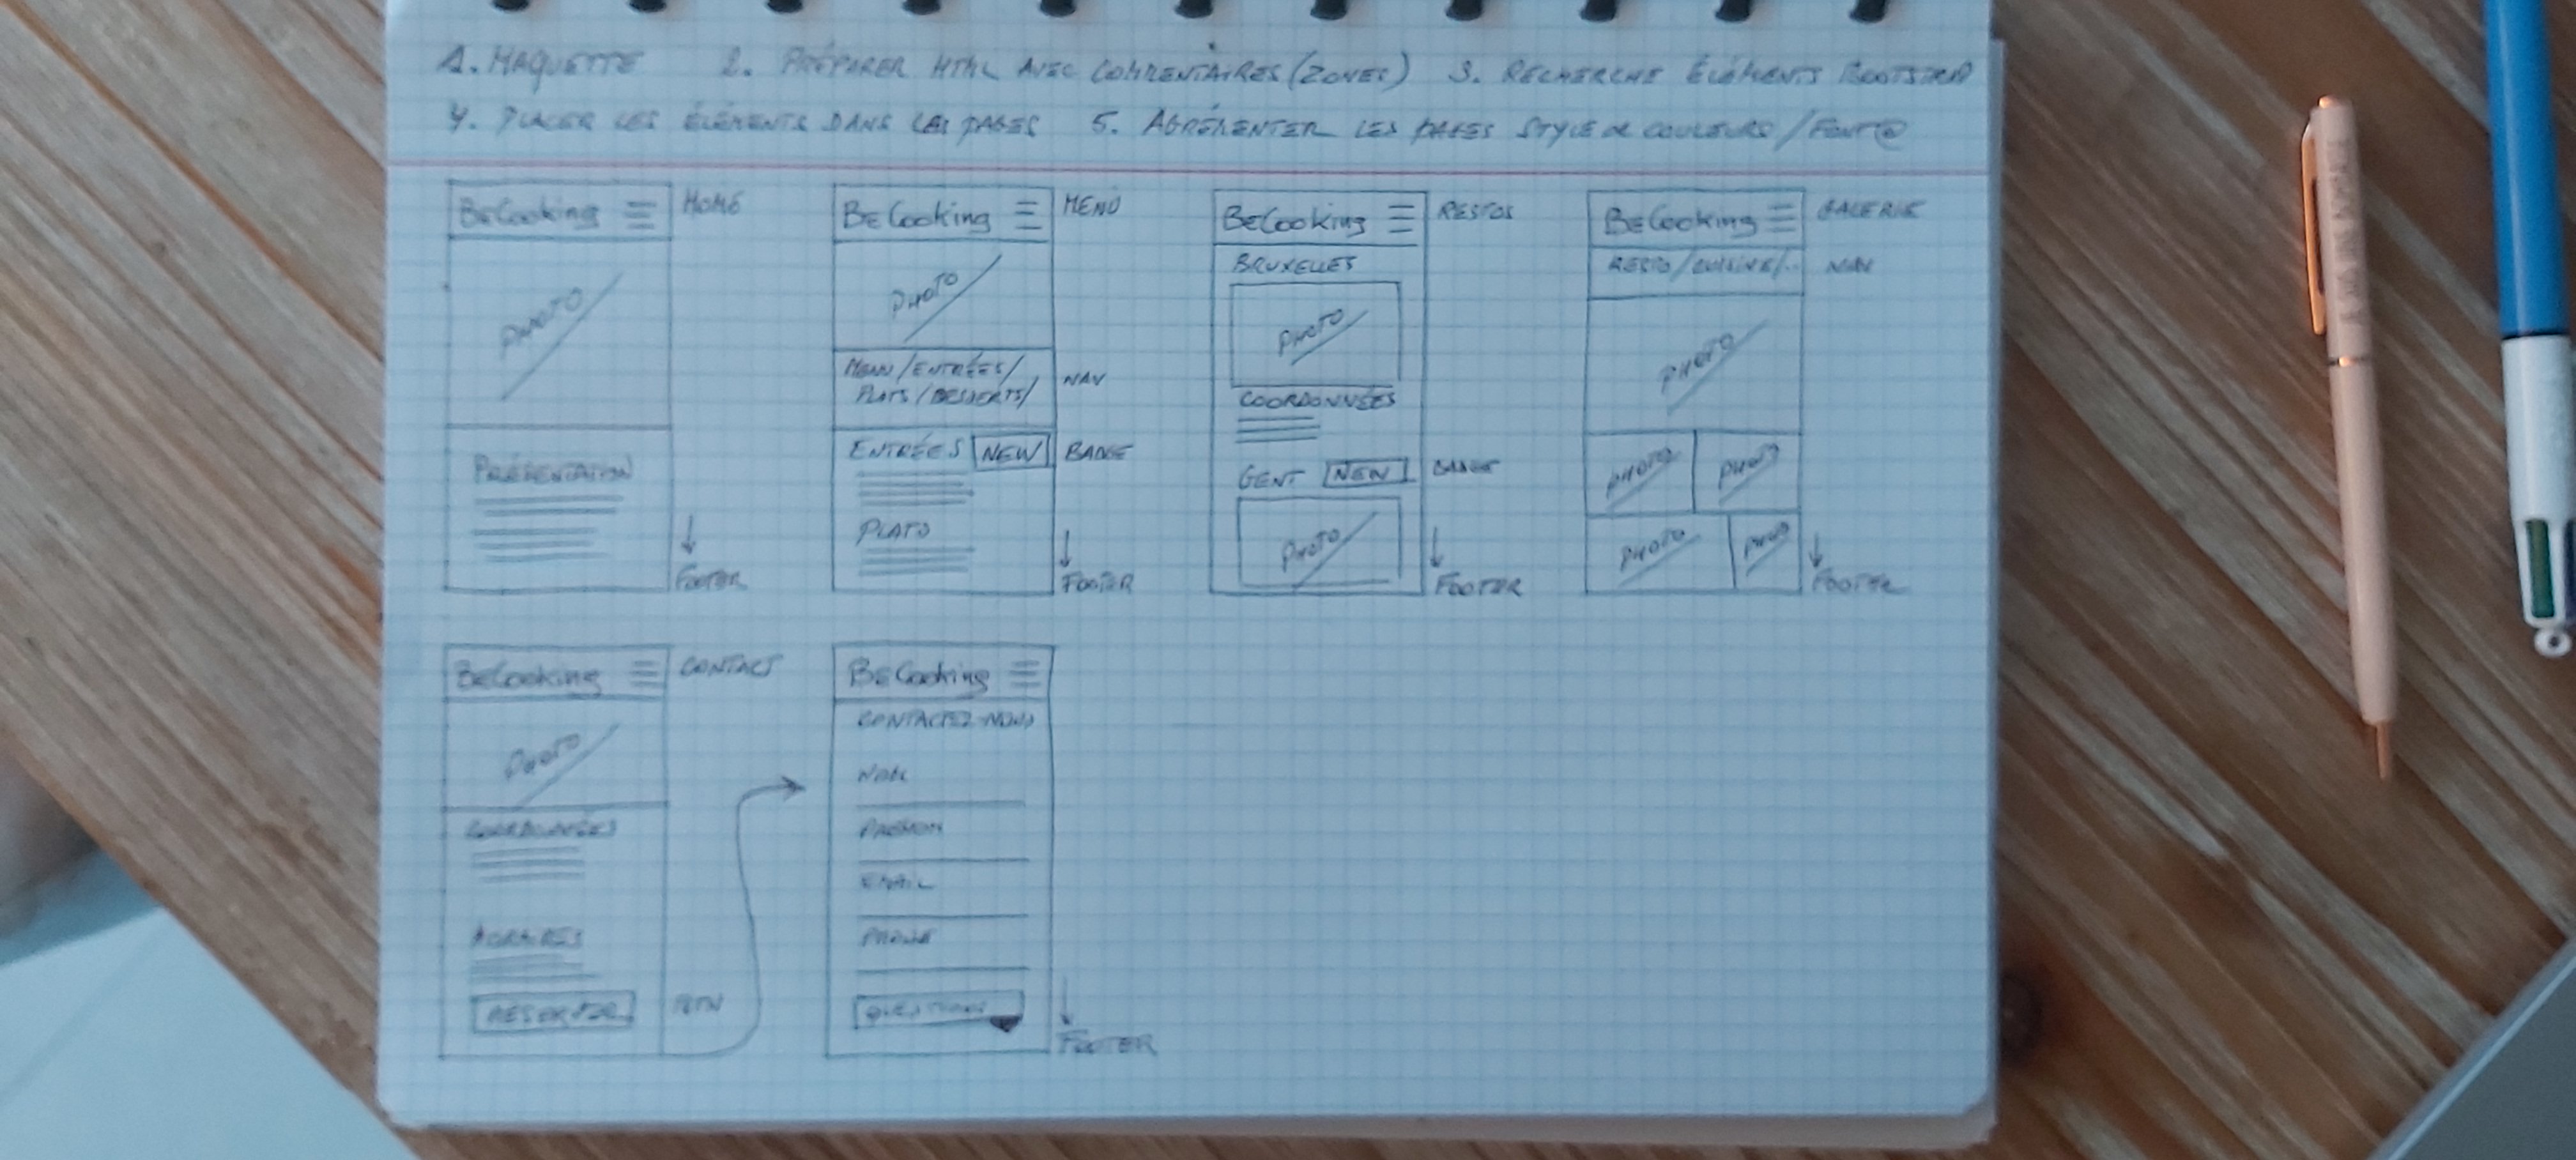 1. MAQUETTE 2. PRÉPARER HTML AVEC COMMENTAIRES (ZONES) 3. RECHERCHE ÉLÉMENTS BOOTSTRAP
4. PLACER LES ÉLÉMENTS DANS LES PAGES 5. AGRÉMENTER LES PAGES STYLE DE COULEURS / FONT @
BeCooking HOME
PHOTO
PRÉSENTATION
FOOTER
BeCooking MENU
PHOTO
MENU/ENTRÉES/
PLATS/DESSERTS/ NAV
ENTRÉES NEW BADGE
PLATS
FOOTER
BeCooking RESTOS
BRUXELLES
PHOTO
COORDONNÉES
GENT NEW BADGE
PHOTO
FOOTER
BeCooking GALERIE
RESTO/CUISINE/... NAV
PHOTO
PHOTO PHOTO
PHOTO PHOTO
FOOTER
BeCooking CONTACT
PHOTO
COORDONNÉES
HORAIRES
RESERVER BTN
BeCooking
CONTACTEZ-NOUS
NOM
PRENOM
EMAIL
PHONE
FOOTER
JE SUIS UNE